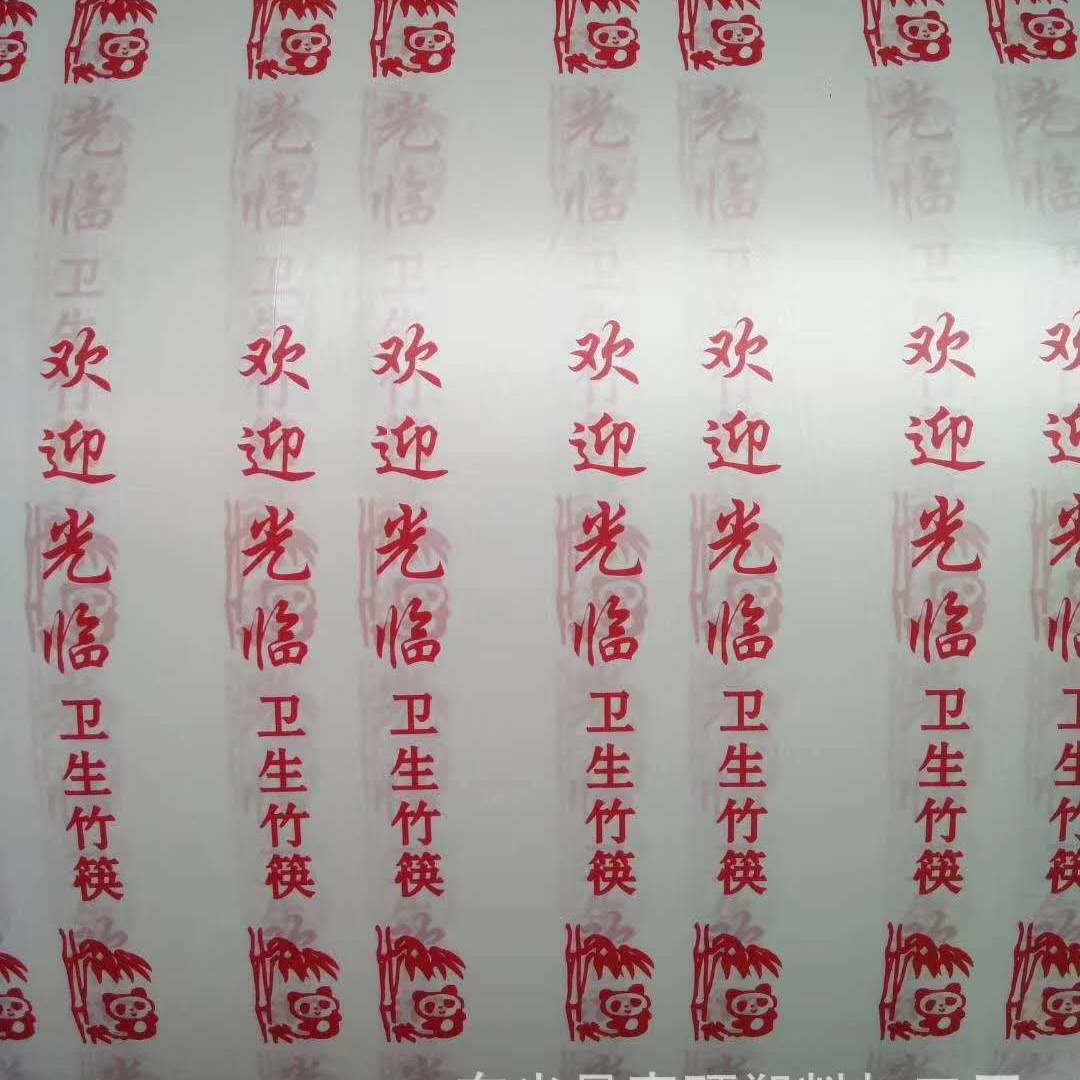 欢迎光临
卫生竹筷
欢迎光临
卫生竹筷
欢迎光临
卫生竹筷
欢迎光临
卫生竹筷
欢迎光临
卫生竹筷
欢迎光临
卫生竹筷
欢迎光临
卫生竹筷